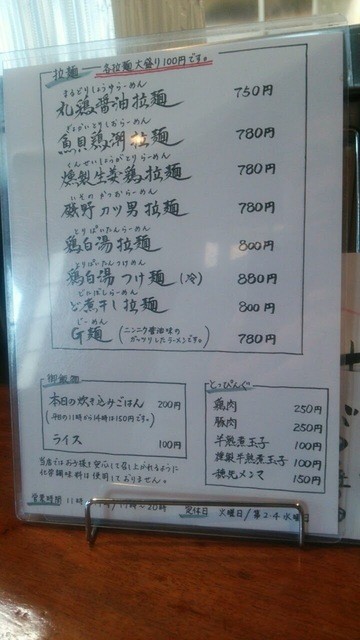 拉麺 各拉麺大盛り100円です。
まるどりしょうゆらーめん
丸鶏醤油拉麺 750円
ぎょかいとりしおらーめん
魚貝鶏潮拉麺 780円
くんせいしょうがとりらーめん
燻製生姜鶏拉麺 780円
いそのかつおらーめん
磯野カツ男拉麺 780円
とりぱいたんらーめん
鶏白湯拉麺 800円
とりぱいたんつけめん
鶏白湯つけ麺(冷) 880円
どにぼしらーめん
ど煮干し拉麺 800円
じーめん
G麺 (ニンニク醤油味のガッツリしたラーメンです。) 780円
御飯類
本日の炊き込みごはん 200円
(平日の11時から14時は150円です。)
ライス 100円
とっぴんぐ
鶏肉 250円
豚肉 250円
半熟煮玉子 100円
燻製半熟煮玉子 100円
穂先メンマ 150円
当店ではお客様に安心して召し上がれるように
化学調味料は使用しておりません。
営業時間 11時 20時
定休日 火曜日/第2・4水曜日